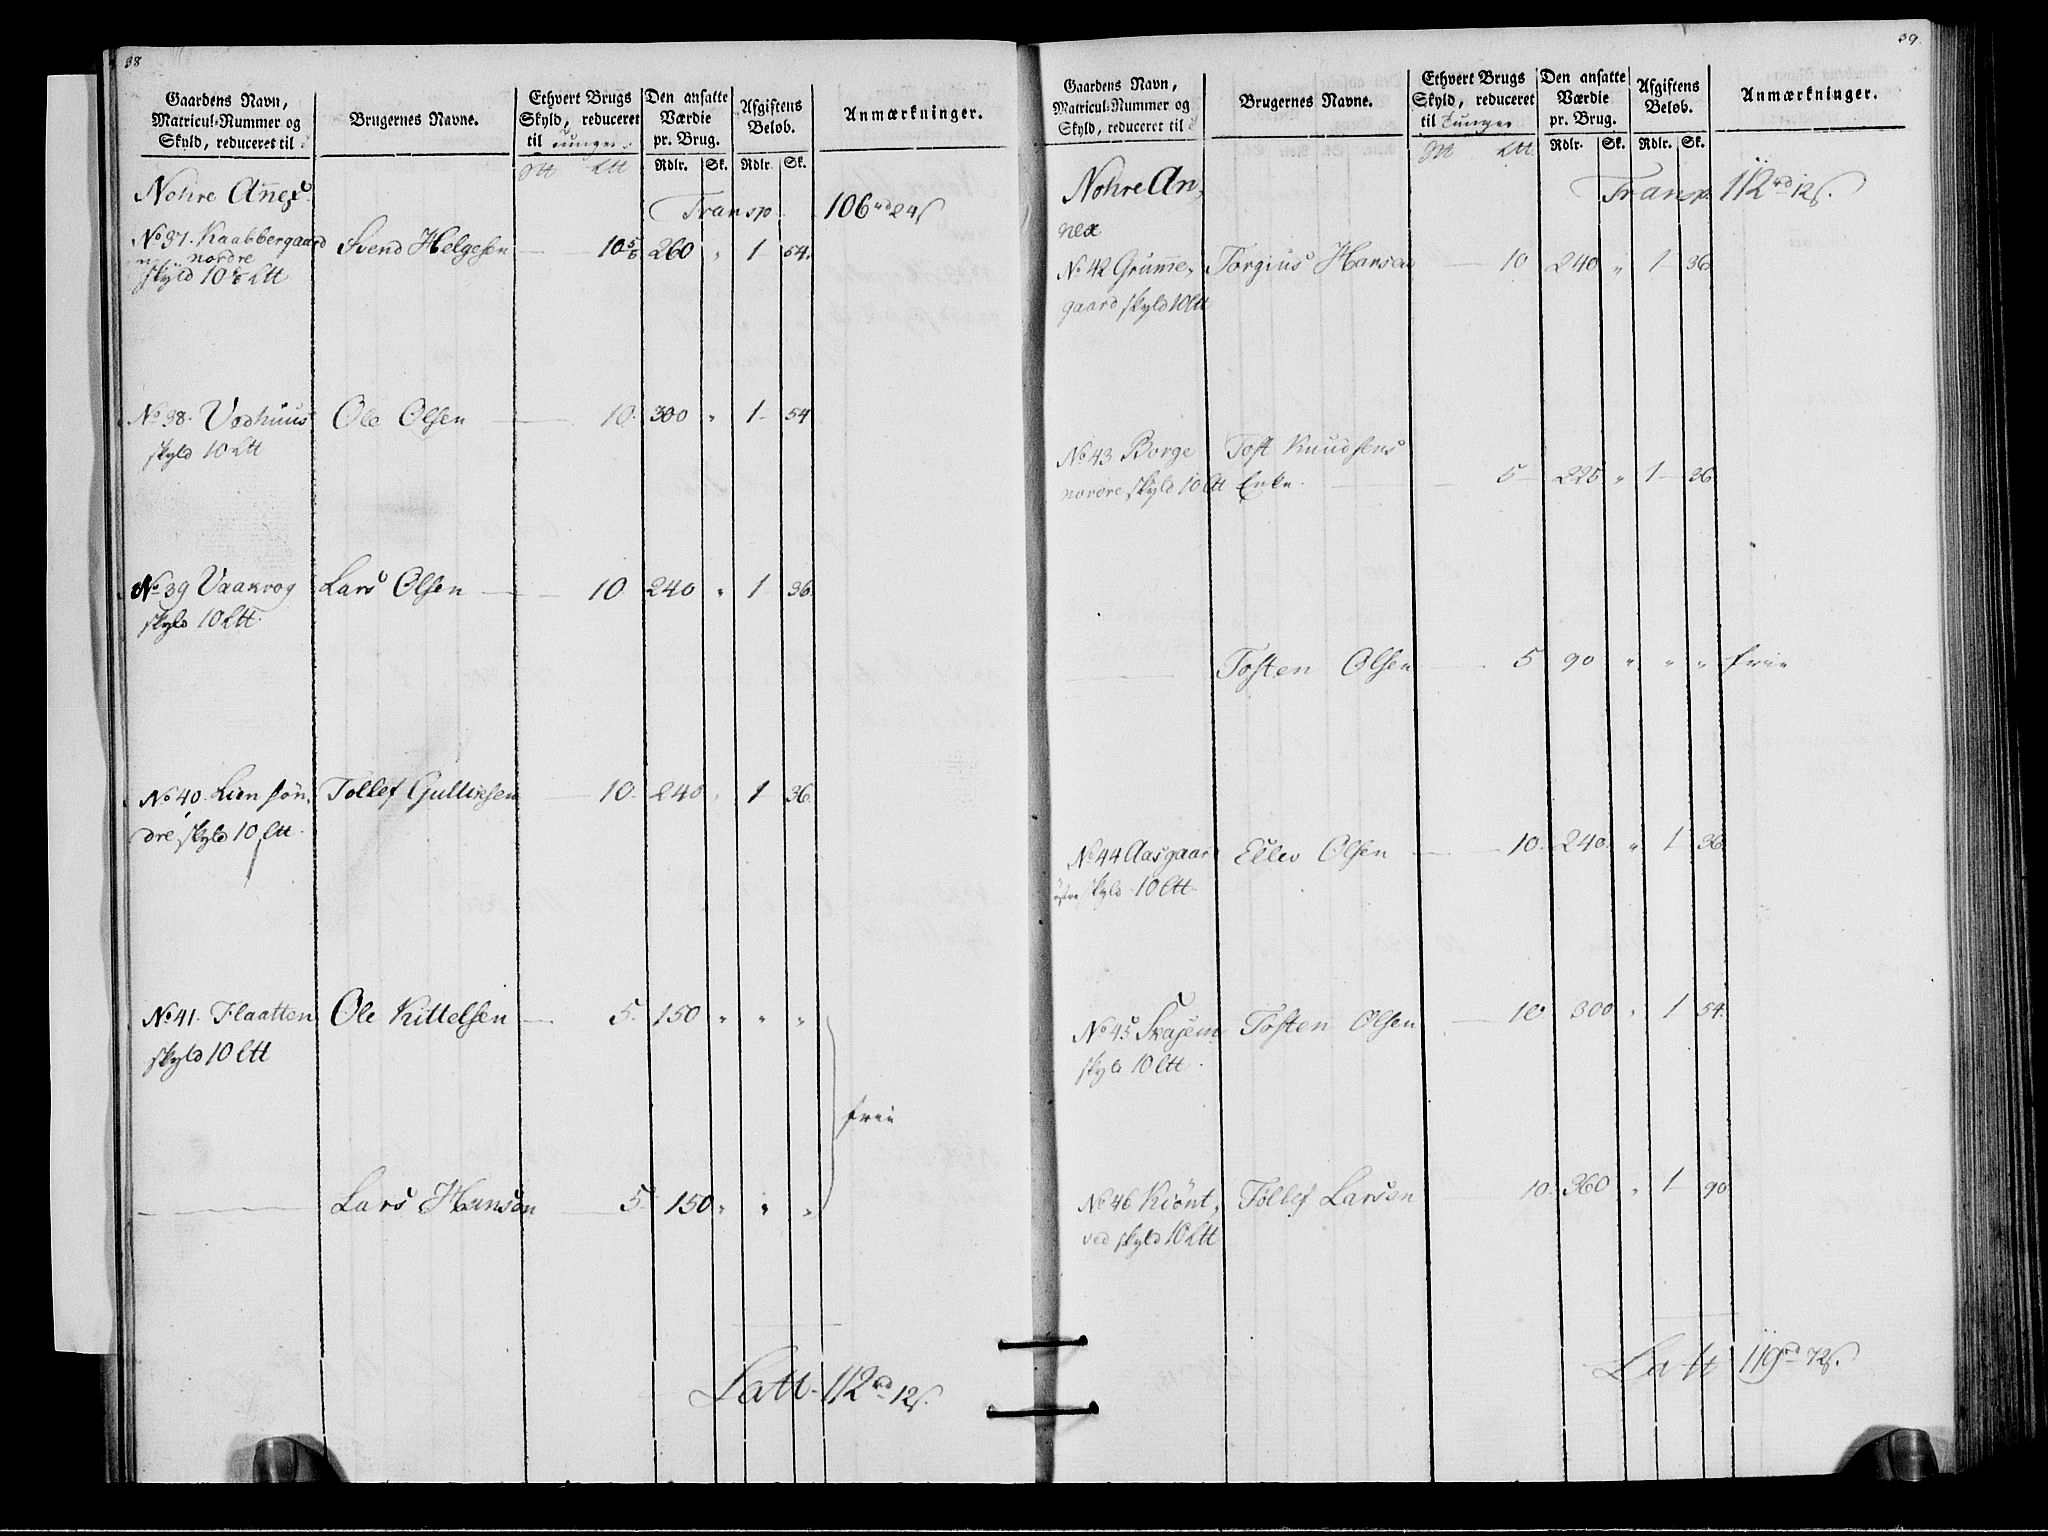 38
Gaardens Navn, Matricul-Nummer og Skyld, reduceret til
Brugernes Navne.
Ethvert Brugs Skyld, reduceret til Tunger.
Den ansatte Værdie pr. Brug.
Afgiftens Beløb.
Anmærkninger.
Rdlr. Sk. Rdlr. Sk.
Nohre Annex
Transp. 106 rd 24 s.
No 37. Kaabbergaard Svend Helgesen 10 5/6 260 " 1 54.
nordre
skyld 10 5/6 Ltt
No 38. Vodhuus Ole Olsen 10. 300 " 1 54
skyld 10 Ltt
No 39 Vaakvog Lars Olsen 10 240 " 1 36.
skyld 10 Ltt.
No 40. Lien søn, Tollef Gullicksen 10. 240 " 1 36.
dre skyld 10 Ltt.
No 41. Flaatten Ole Kittelsen 5. 150 " " "
skyld 10 Ltt
frie
Lars Hansen 5. 150 " " "
Latt. 112 rd 12 s.
39.
Gaardens Navn, Matricul-Nummer og Skyld, reduceret til
Brugernes Navne.
Ethvert Brugs Skyld, reduceret til Tunger
Den ansatte Værdie pr. Brug.
Afgiftens Beløb.
Anmærkninger.
Rdlr. Sk. Rdlr. Sk.
Nohre An,
nex
Transp. 112 rd 12 s.
No 42 Grumme, Torgius Hansen 10 240 " 1 36
gaard skyld 10 Ltt
No 43 Borge Tost Knudsens
nordre skyld 10 Ltt Enke. 5 225 " 1 36
Tosten Olsen 5 90 " " " frie
No 44 Aasgaard Ellev Olsen 10. 240. " 1 36
østre skyld 10 Ltt.
No 45 Skajem Tosten Olsen 10 300 " 1 54.
skyld 10 Ltt.
No 46 Kiønt, Tollef Larsen 10. 360 " 1 90
ved skyld 10 Ltt
Latt 119 rd 72 s.